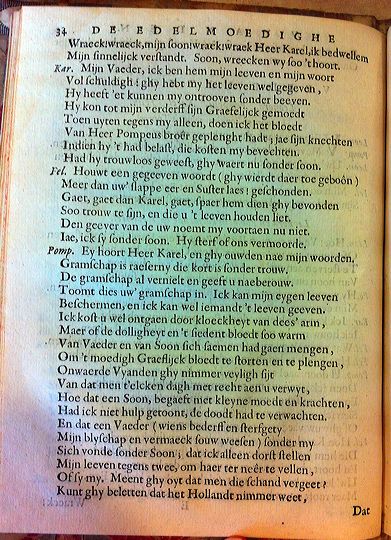 34 DE EDELMOEDIGHE
Wraeck! wraeck, mijn soon! wraeck! wraek Heer Karel, ik bedwellem
Mijn sinnelijck verstandt. Soon, wreecken wy soo 't hoort.
Kar. Mijn Vaeder, ick ben hem mijn leeven en mijn woort
Vol schuldigh: ghy hebt my het leeven wel gegeven,
Hy heeft 'et kunnen my ontrooven sonder beeven.
Hy kon tot mijn verderff sijn Graefelijck gemoedt
Toen uyten tegens my alleen, doen ick het bloedt
Van Heer Pompeus broêr geplenght hadt; jae sijn knechten
Indien hy 't had belast, die kosten my bevechten.
Had hy trouwloos geweest, ghy waert nu sonder soon.
Fel. Houwt een gegeeven woordt (ghy wierdt daer toe geboôn)
Meer dan uw' slappe eer en Suster laes! geschonden.
Gaet, gaet dan Karel, gaet, spaer hem dien ghy bevonden
Soo trouw te sijn, en die u 't leeven houden liet.
Den geever van de uw noemt my voortaen nu niet.
Iae, ick sy sonder soon. Hy sterf of ons vermoorde.
Pomp. Ey hoort Heer Karel, en ghy ouwden nae mijn woorden,
Gramschap is raeserny die kort is sonder trouw.
De gramschap al vernielt en geeft u naeberouw.
Toomt dies uw' gramschap in. Ick kan mijn eygen leeven
Beschermen, en ick kan wel iemandt 't leeven geeven.
Ick kost u wel ontgaen door kloeckheyt van dees' arm,
Maer of de dolligheyt en 't siedent bloedt soo warm
Van Vaeder en van Soon sich saemen had gaen mengen,
Om 't moedigh Graeflijck bloedt te storten en te plengen,
Onwaerde Vyanden ghy nimmer veyligh sijt
Van dat men t'elcken dagh met recht aen u verwyt,
Hoe dat een Soon, begaeft met kleyne moedt en krachten,
Had ick niet hulp getoont, de doodt had te verwachten.
En dat een Vaeder (wiens bederff en sterfgety
Mijn blyschap en vermaeck souw weesen) sonder my
Sich vonde sonder Soon; dat ick alleen dorst stellen
Mijn leeven tegens twee, om haer ter neêr te vellen,
Of sy my. Meent ghy oyt dat men die schand vergeet?
Kunt ghy beletten dat het Hollandt nimmer weet,
Dat